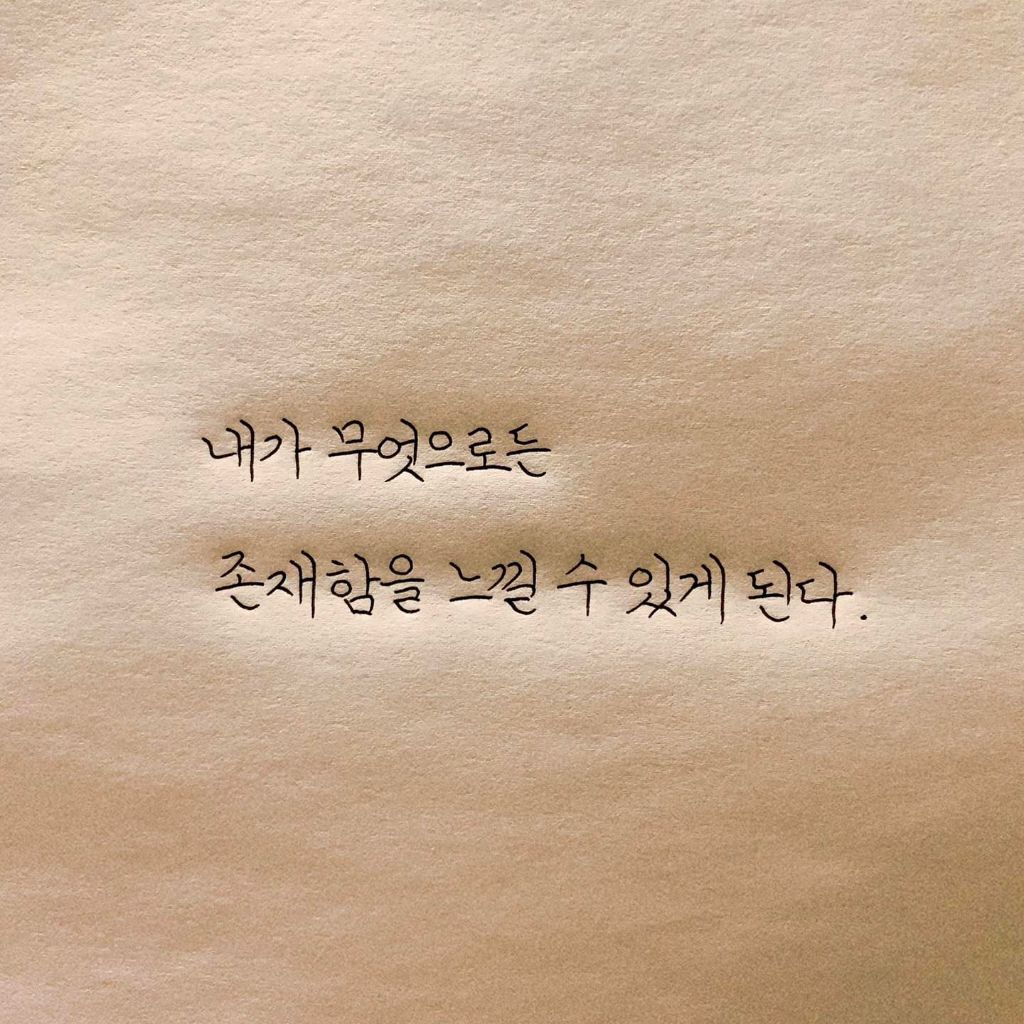 내가 무엇으로든
존재함을 느낄 수 있게 된다.